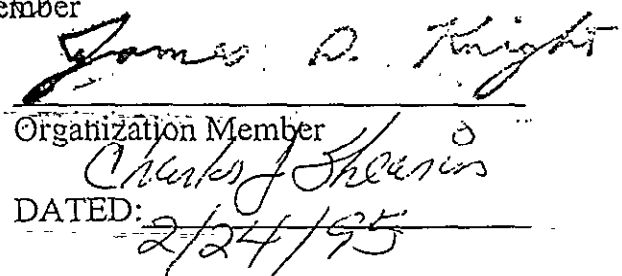 ember
James D. Knight
Organization Member
Charles J Shearin
DATED:
2/24/95